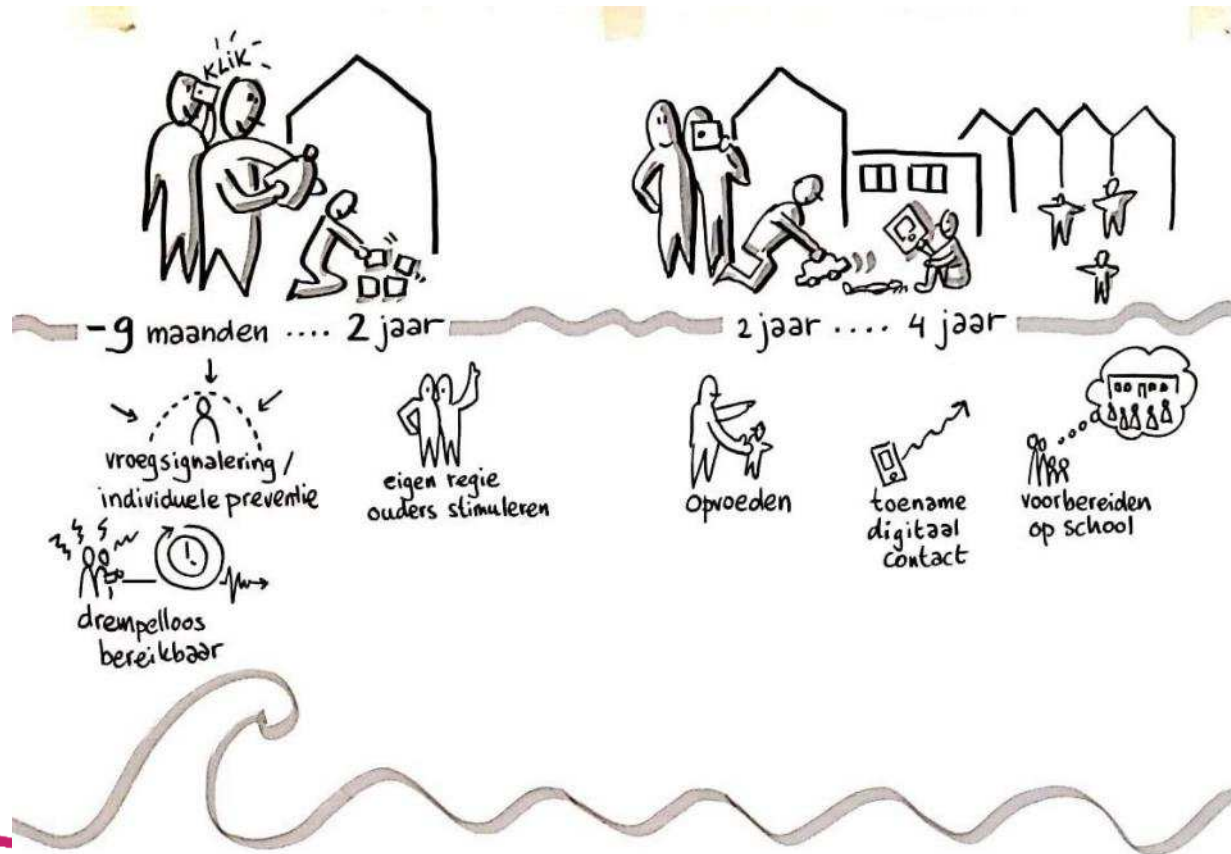 KLIK
-9 maanden .... 2 jaar
2 jaar .... 4 jaar
vroegsignalering /
individuele preventie
eigen regie
ouders stimuleren
opvoeden
toename
digitaal
contact
voorbereiden
op school
drempelloos
bereikbaar